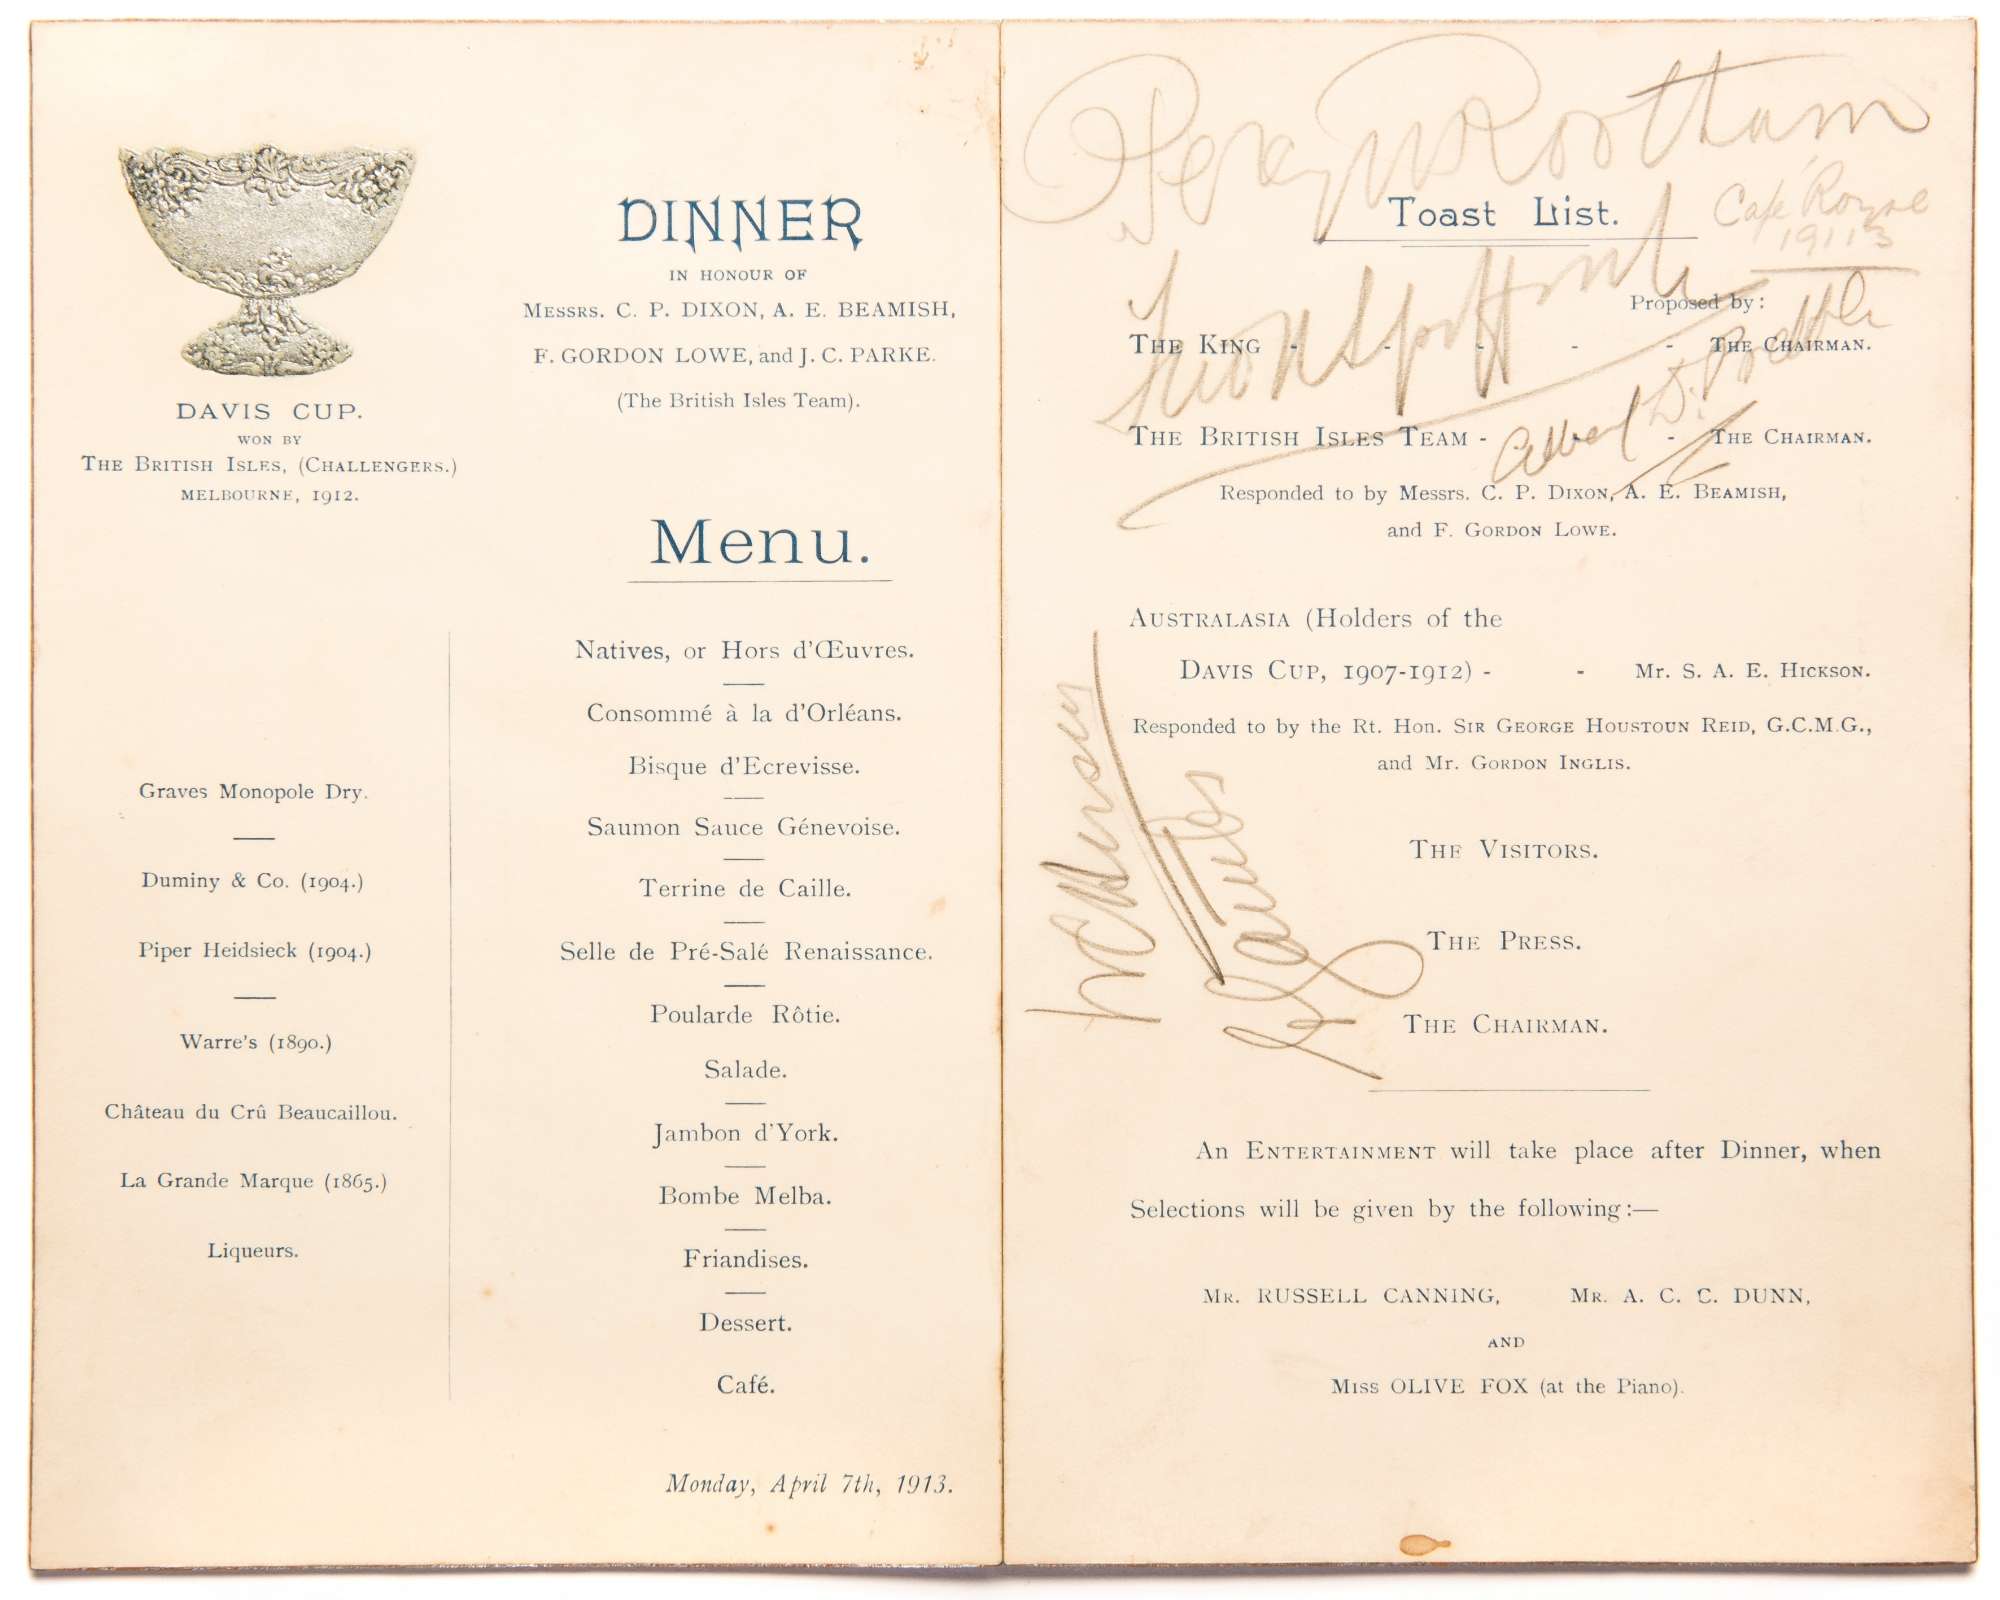 DAVIS CUP.
WON BY
THE BRITISH ISLES, (CHALLENGERS.)
MELBOURNE, 1912.
DINNER
IN HONOUR OF
MESSRS. C. P. DIXON, A. E. BEAMISH,
F. GORDON LOWE, and J. C. PARKE.
(The British Isles Team).
Menu.
Graves Monopole Dry.
Duminy & Co. (1904.)
Piper Heidsieck (1904.)
Warre's (1890.)
Château du Crû Beaucaillou.
La Grande Marque (1865.)
Liqueurs.
Natives, or Hors d'Œuvres.
Consommé à la d'Orléans.
Bisque d'Ecrevisse.
Saumon Sauce Génevoise.
Terrine de Caille.
Selle de Pré-Salé Renaissance.
Poularde Rôtie.
Salade.
Jambon d'York.
Bombe Melba.
Friandises.
Dessert.
Café.
Monday, April 7th, 1913.
Percy W Rootham
Toast List.
Café Royal
Proposed by:
THE KING - - - - - THE CHAIRMAN.
Albert D.
THE BRITISH ISLES TEAM - - - THE CHAIRMAN.
Responded to by Messrs. C. P. DIXON, A. E. BEAMISH,
and F. GORDON LOWE.
AUSTRALASIA (Holders of the
DAVIS CUP, 1907-1912) - - Mr. S. A. E. HICKSON.
Responded to by the Rt. Hon. SIR GEORGE HOUSTOUN REID, G.C.M.G.,
and Mr. GORDON INGLIS.
THE VISITORS.
THE PRESS.
THE CHAIRMAN.
An ENTERTAINMENT will take place after Dinner, when
Selections will be given by the following:—
MR. RUSSELL CANNING, MR. A. C. C. DUNN,
AND
MISS OLIVE FOX (at the Piano).